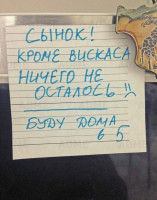 СЫНОК!
КРОМЕ ВИСКАСА
НИЧЕГО НЕ
ОСТАЛОСЬ!!
БУДУ ДОМА
в 5